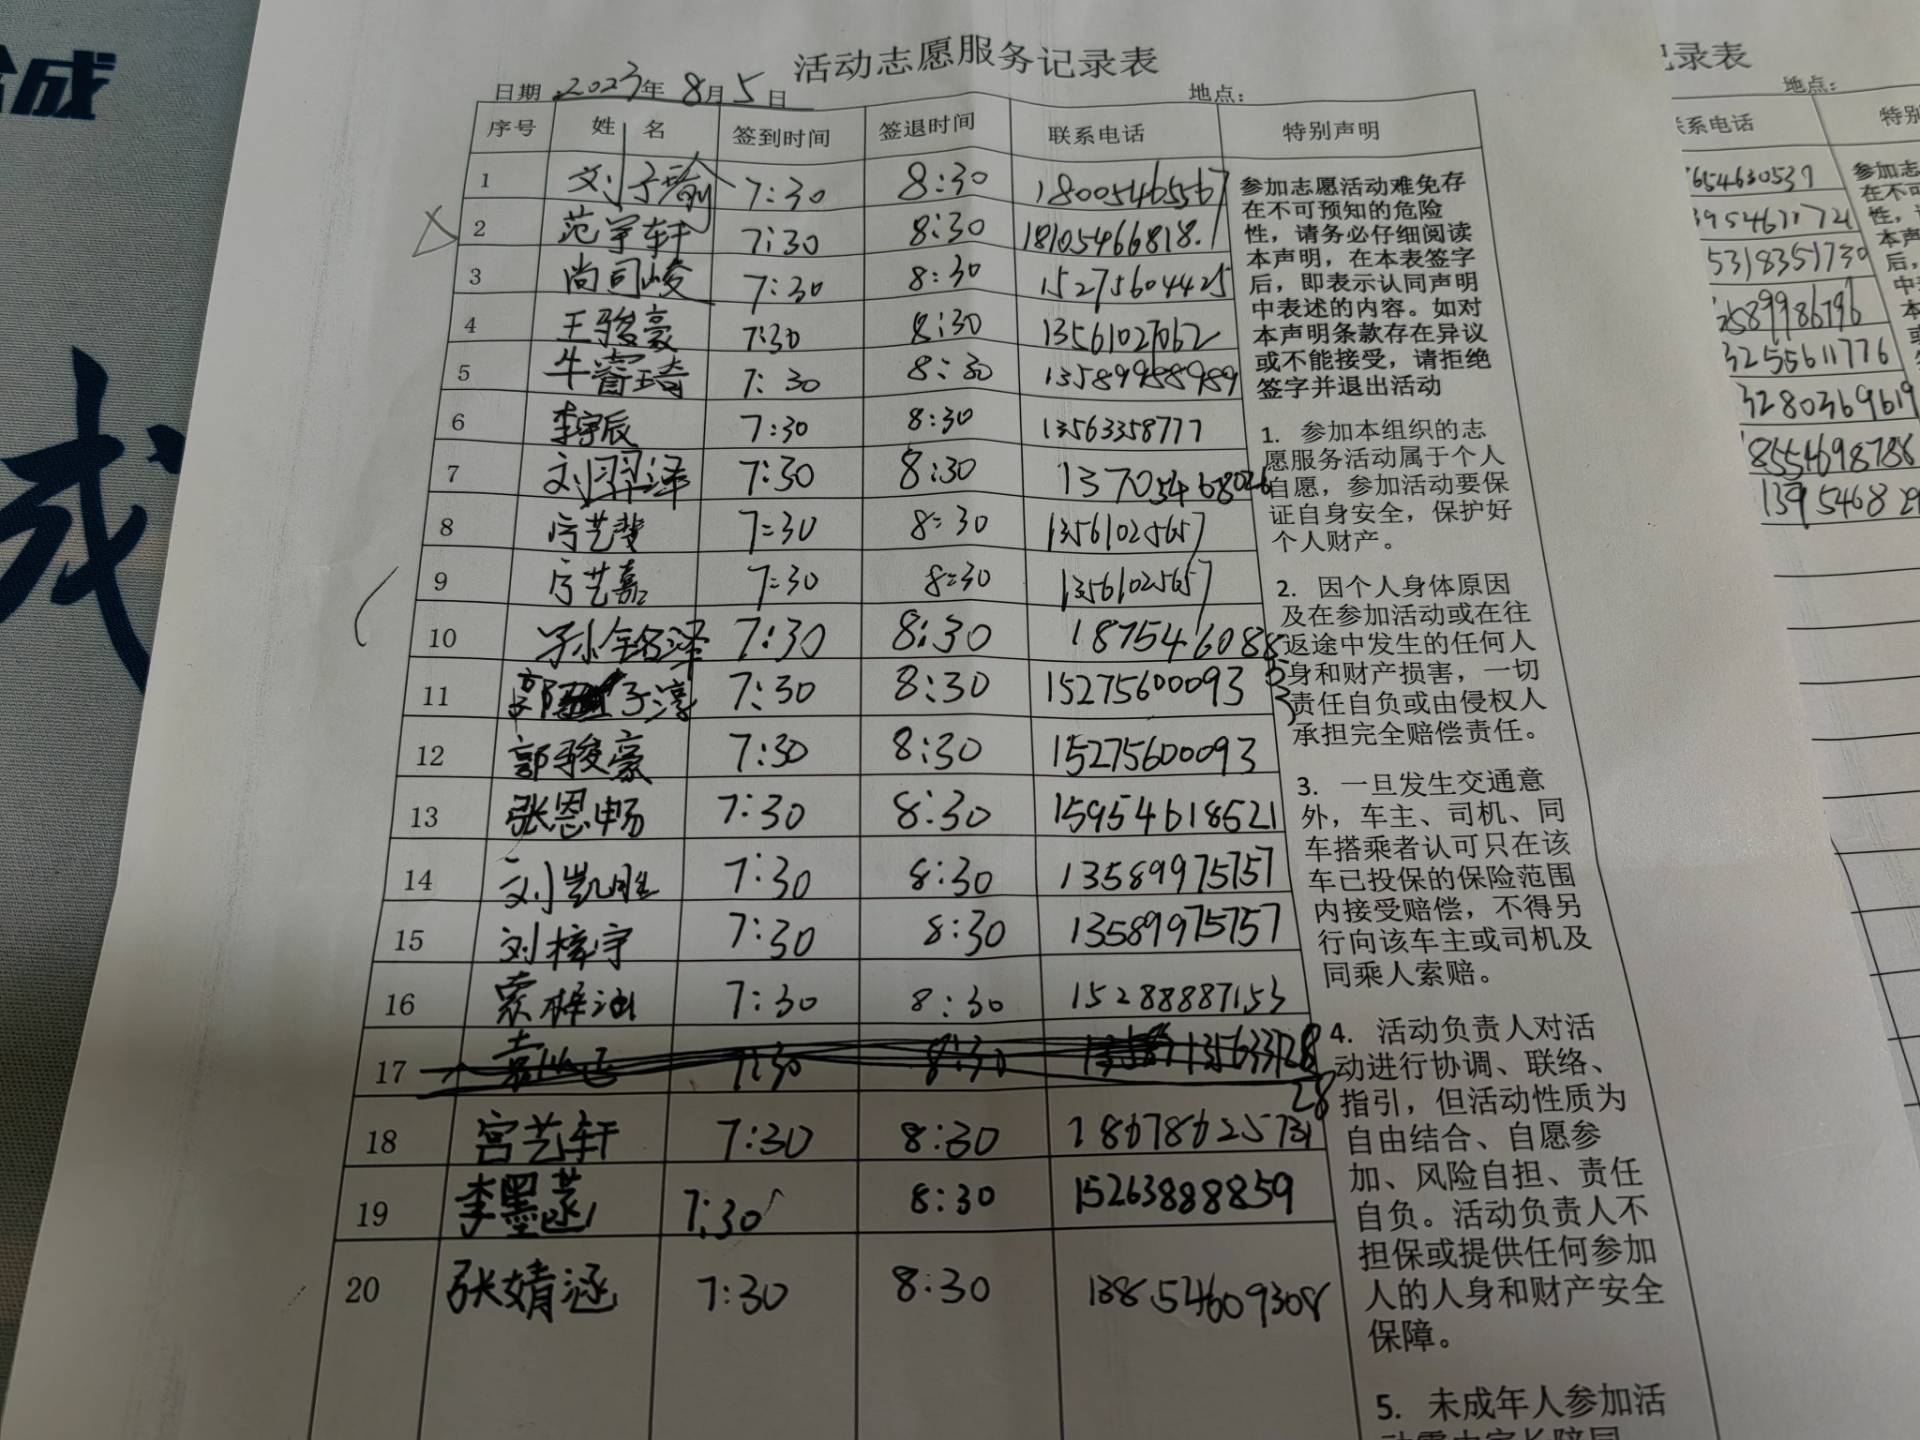 成
成
活动志愿服务记录表
日期 2023年 8月5日 地点：
序号 姓 名 签到时间 签退时间 联系电话 特别声明
1 刘子瑜 7:30 8:30 18005465567
2 范宇轩 7:30 8:30 18105466818.
3 尚司峻 7:30 8:30 15275604425
4 王骏豪 7:30 8:30 13561027062
5 牛睿琦 7:30 8:30 13589988989
6 李宇辰 7:30 8:30 13563358777
7 刘羿泽 7:30 8:30 13705468026
8 7:30 8:30 13561025657
9 7:30 8:30 13561025657
10 孙铭泽 7:30 8:30 18754608853
11 郭子淳 7:30 8:30 15275600093
12 郭骏豪 7:30 8:30 15275600093
13 张恩畅 7:30 8:30 15954618521
14 刘凯胜 7:30 8:30 13589975757
15 刘梓宇 7:30 8:30 13589975757
16 7:30 8:30 15288887153
17 7:30 8:30
18 宫艺轩 7:30 8:30 18678625731
19 李墨菡 7:30 8:30 15263888859
20 张婧涵 7:30 8:30 13854609308
参加志愿活动难免存
在不可预知的危险
性，请务必仔细阅读
本声明，在本表签字
后，即表示认同声明
中表述的内容。如对
本声明条款存在异议
或不能接受，请拒绝
签字并退出活动
1. 参加本组织的志
愿服务活动属于个人
自愿，参加活动要保
证自身安全，保护好
个人财产。
2. 因个人身体原因
及在参加活动或在往
返途中发生的任何人
身和财产损害，一切
责任自负或由侵权人
承担完全赔偿责任。
3. 一旦发生交通意
外，车主、司机、同
车搭乘者认可只在该
车已投保的保险范围
内接受赔偿，不得另
行向该车主或司机及
同乘人索赔。
4. 活动负责人对活
动进行协调、联络、
指引，但活动性质为
自由结合、自愿参
加、风险自担、责任
自负。活动负责人不
担保或提供任何参加
人的人身和财产安全
保障。
5. 未成年人参加活
记录表
地点：
联系电话 特别
654630539
5318351730
25899986796
3255611776
3280369619
8554698788
参加志
在不可
性，
本声
后，